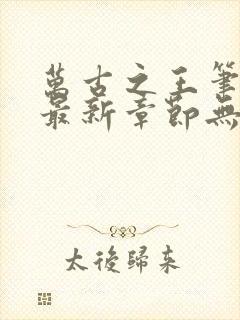 萬古之王筆
最新章節無
太後歸来